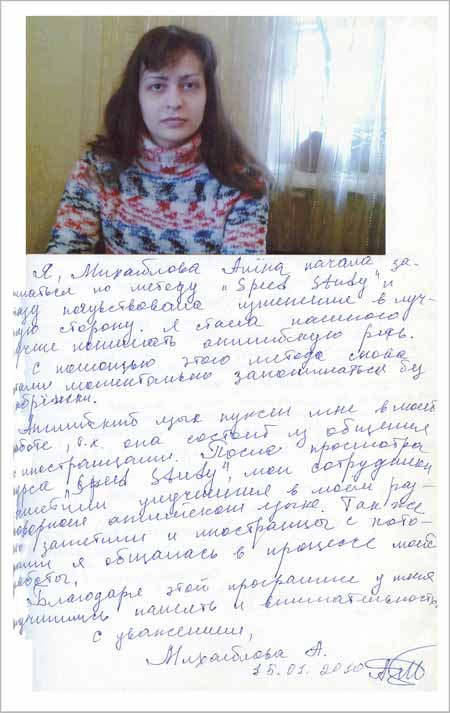 Я, Михайлова Алина начала за-
иматься по методу "Speed Study" и
азу почувствовала изменение в луч-
ную сторону. Я стала намного
учше понимать английскую речь.
С помощью этого метода слова
стали моментально запоминаться без
убрёжки.
Английский язык нужен мне в моей
работе, т.к. она состоит из общения
с иностранцами. После просмотра
урса "Speed Study", мои сотрудники
аметили улучшения в моём раз-
говорном английском языке. Также
заметили и иностранцы с кото-
рыми я общалась в процессе моей
работы.
Благодаря этой программе у меня
лучшилась память и внимательность.
С уважением,
Михайлова А.
15.01.2010